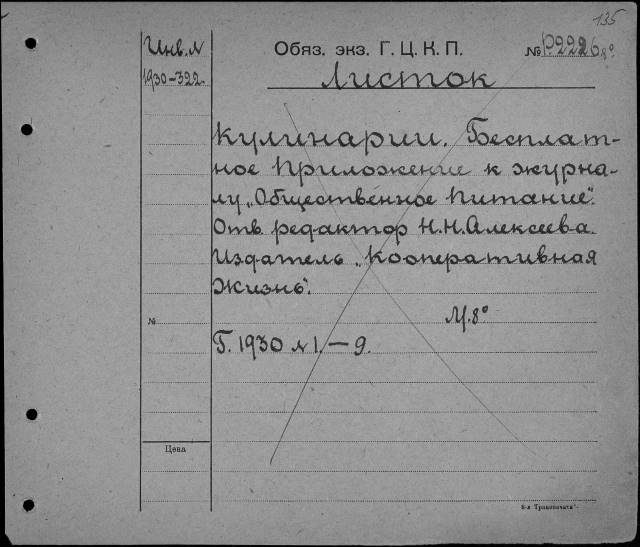 135
Инв. №
1930-322.
Обяз. экз. Г. Ц. К. П.
№ Р2226 8°
Листок
кулинарии. Бесплат-
ное приложение к журна-
лу „Общественное питание".
Отв. редактор Н.Н. Алексеева.
Издатель „Кооперативная
жизнь".
М. 8°
№
Г. 1930 № 1. — 9.
Цена